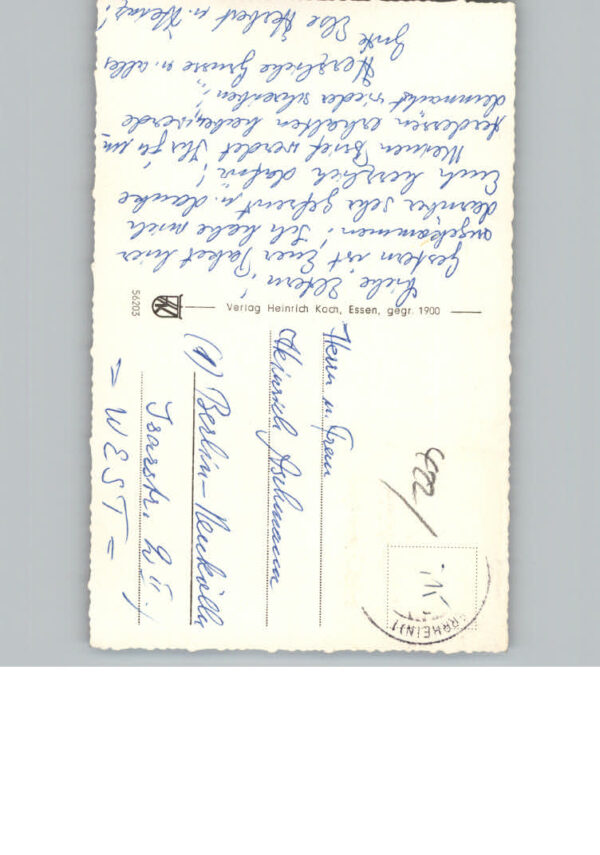 Liebe Eltern!
Gestern ist Euer Paket hier
angekommen. Ich habe mich
darüber sehr gefreut u. danke
Euch herzlich dafür!
Meinen Brief werdet Ihr ja in-
erhalten haben, werde
demnächst wieder schreiben!
Herzliche Grüsse u. alles
Gute Else Herbert u.
Verlag Heinrich Koch, Essen, gegr. 1900
56203
Herrn u. Frau
Heinrich Aschmann
(1) Berlin-Neukölln
Isarstr. 2 II
= WEST =
RRHEIN) 1